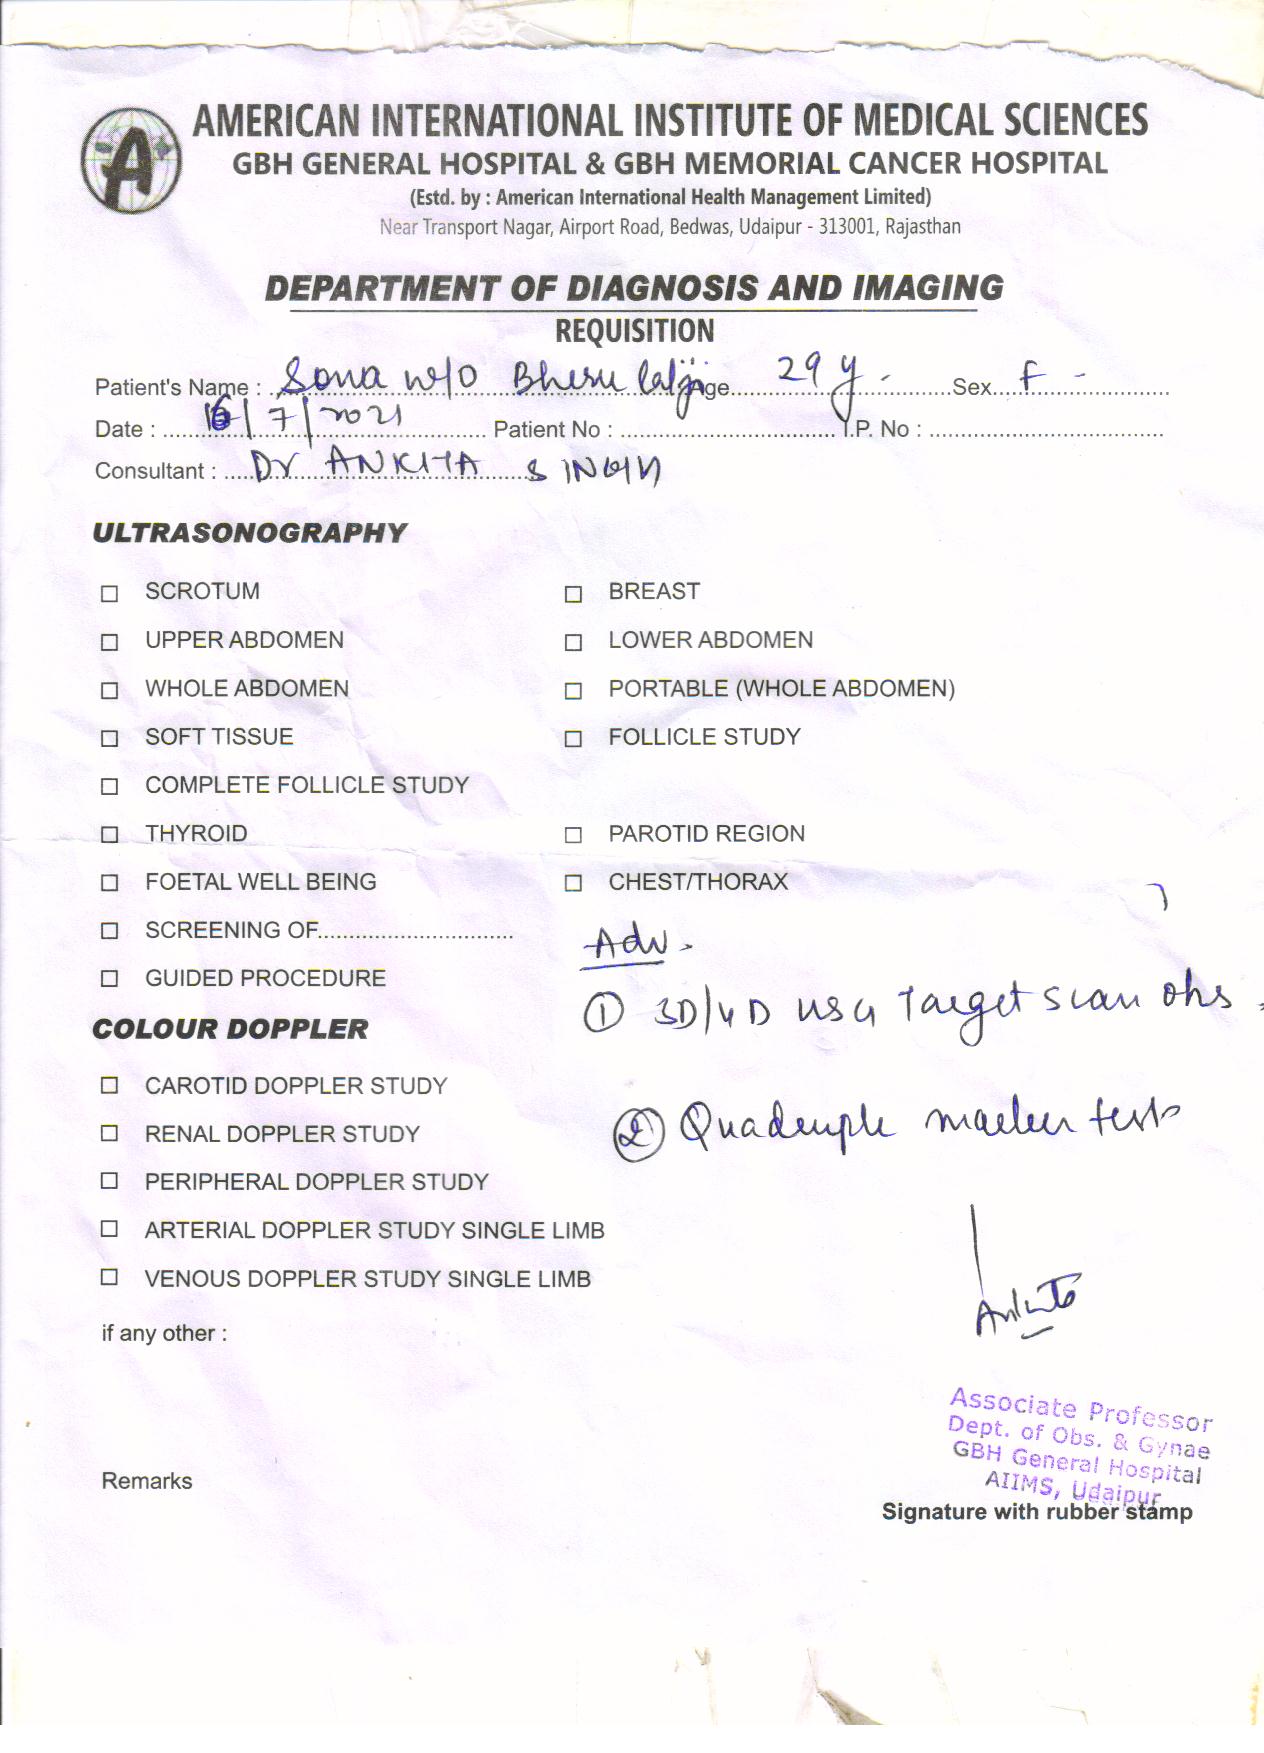 AMERICAN INTERNATIONAL INSTITUTE OF MEDICAL SCIENCES
GBH GENERAL HOSPITAL & GBH MEMORIAL CANCER HOSPITAL
(Estd. by : American International Health Management Limited)
Near Transport Nagar, Airport Road, Bedwas, Udaipur - 313001, Rajasthan
DEPARTMENT OF DIAGNOSIS AND IMAGING
REQUISITION
Patient's Name : Sona w/o Bheru lalji Age 29 y Sex F
Date : 16/7/2021 Patient No : I.P. No :
Consultant : Dr ANKITA SINGH
ULTRASONOGRAPHY
SCROTUM BREAST
UPPER ABDOMEN LOWER ABDOMEN
WHOLE ABDOMEN PORTABLE (WHOLE ABDOMEN)
SOFT TISSUE FOLLICLE STUDY
COMPLETE FOLLICLE STUDY
THYROID PAROTID REGION
FOETAL WELL BEING CHEST/THORAX
SCREENING OF
Adv.
GUIDED PROCEDURE
① 3D/4D USG Target scan obs
COLOUR DOPPLER
CAROTID DOPPLER STUDY
② Quadruple marker test
RENAL DOPPLER STUDY
PERIPHERAL DOPPLER STUDY
ARTERIAL DOPPLER STUDY SINGLE LIMB
VENOUS DOPPLER STUDY SINGLE LIMB
Ankita
if any other :
Associate Professor
Dept. of Obs. & Gynae
GBH General Hospital
AIIMS, Udaipur
Remarks
Signature with rubber stamp